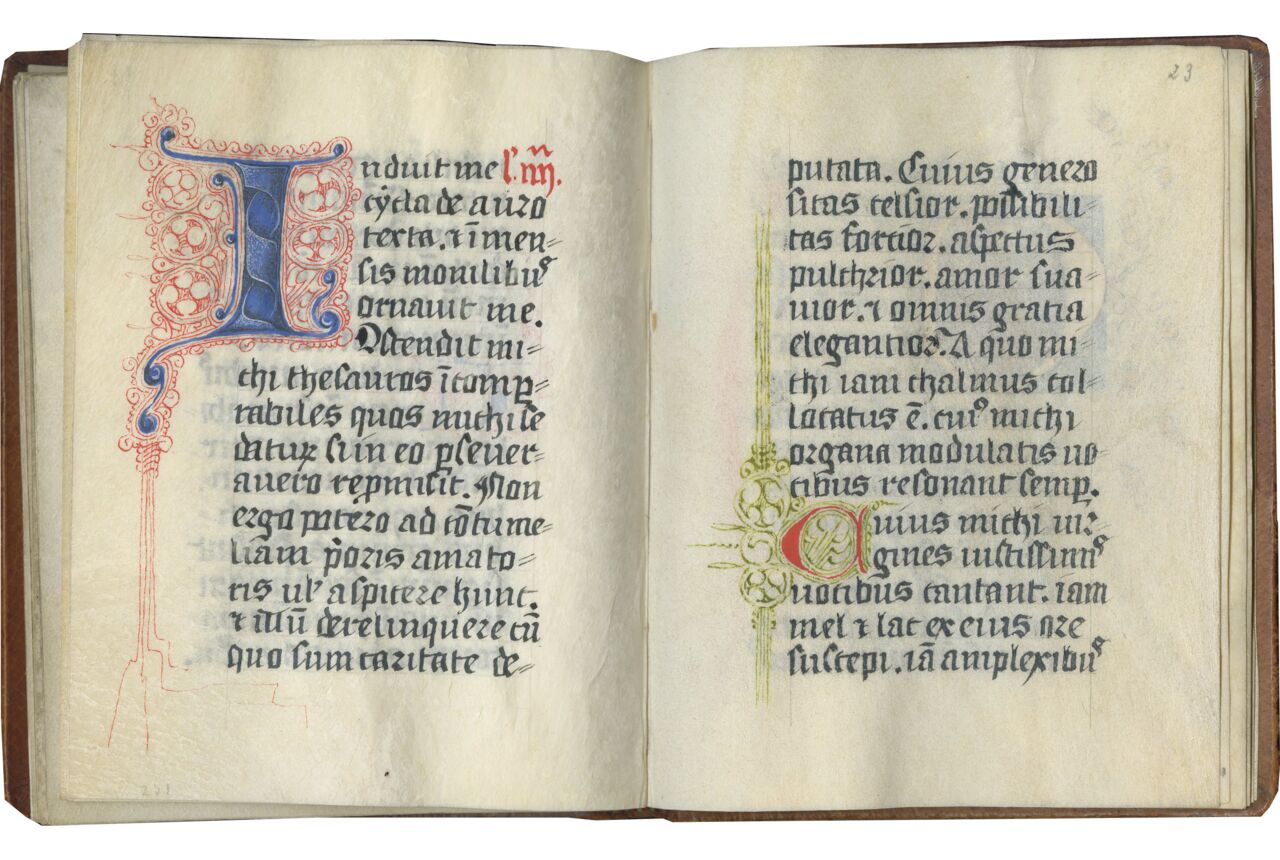 Induit me l'. iiij.
cyclade auro
texta. ⁊ īmen⸗
sis monilibꝰ
ornauit me.
Ostendit mi⸗
chi thesauros īcomp̲⸗
rabiles quos michi se
daturꝝ si in eo ꝑseuer⸗
auero rep̲misit. Non
ergo potero ad cōtume⸗
liam p̄oris amato⸗
ris ul' aspicere hunc.
⁊ illū derelinquere cū
quo sum caritate de⸗
23
putata. Cuius genero
sitas celsior. possibili⸗
tas forcior. aspectus
pulchrior. amor sua⸗
uior. ⁊ omnis gratia
elegantior. A quo mi⸗
chi iam thalmus col⸗
locatus ē. cuiꝰ michi
organa modulatis uo⸗
cibus resonant semp̲.
Cuius michi uir⸗
gines iustissimꝰ
uocibus cantant. iam
mel ⁊ lac ex eius ore
suscepi. iā amplexibꝰ